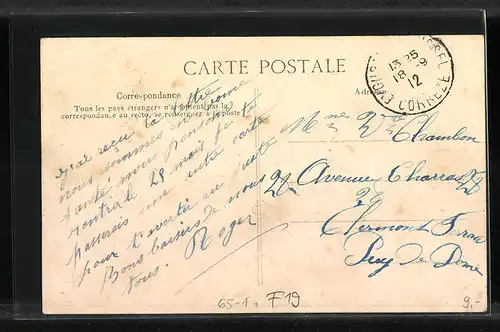 CARTE POSTALE
Correspondance
Tous les pays étrangers n'acceptent pas la
correspondance au recto, se renseigner à la poste
USSEL
13 25
18 -9
12
CORRÈZE
J'ai reçu la
nous sommes en bonne
santé nous pensons
rentrer le 28 mais je
une autre carte
pour t'avertir au juste
Bons baisers de nous
tous. Roger
Mme Vve Chambon
22 Avenue Charras 22
22
Clermont Ferran
Puy de Dome
65-1 F19
9.-